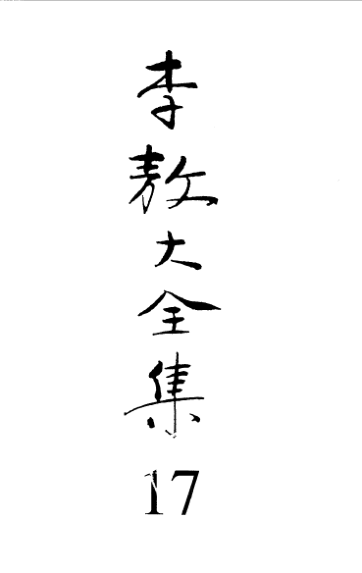 李敖大全集
17